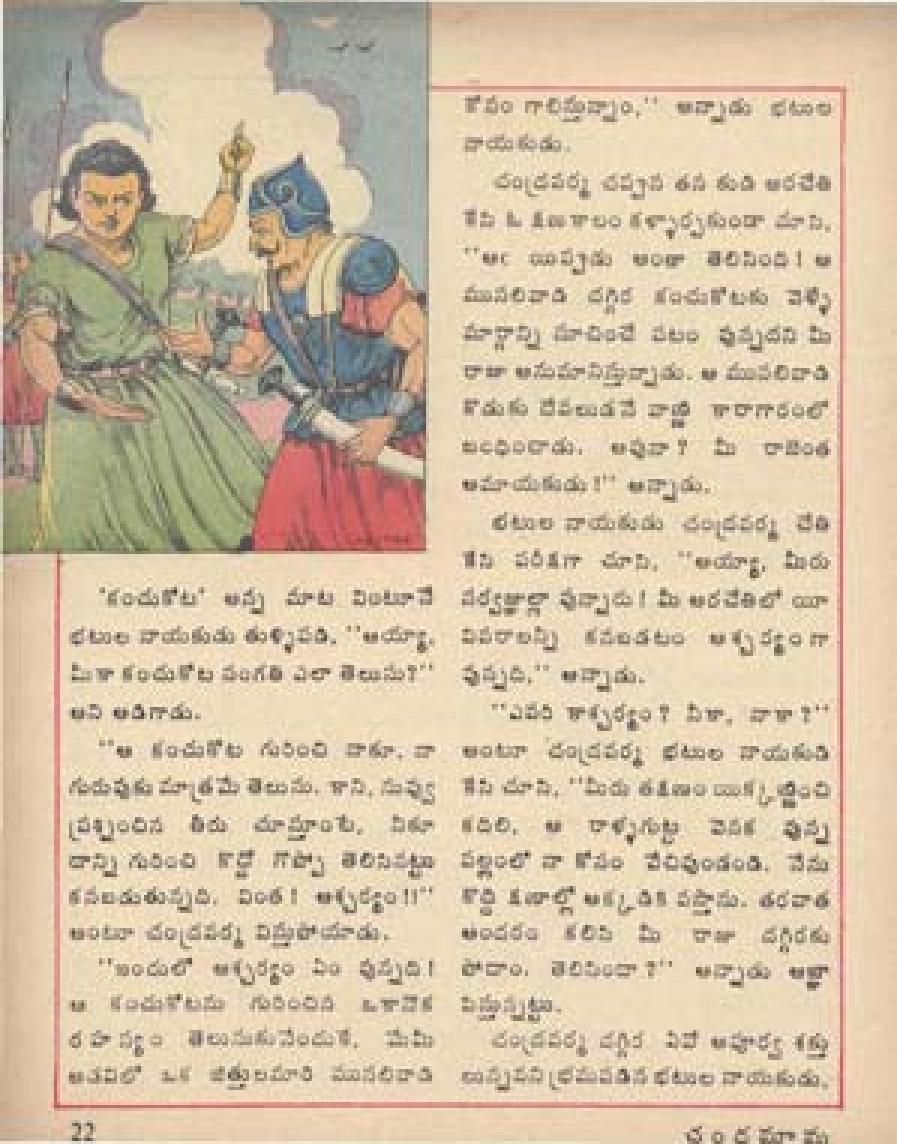 'కంచుకోట' అన్న మాట వింటూనే
భటుల నాయకుడు తుళ్ళిపడి, "అయ్యా,
మీకా కంచుకోట సంగతి ఎలా తెలుసు?"
అని అడిగాడు.
"ఆ కంచుకోట గురించి నాకూ, నా
గురువుకు మాత్రమే తెలుసు. కాని, నువ్వు
ప్రశ్నించిన తీరు చూస్తూంటే, నీకూ
దాన్ని గురించి కొద్దో గొప్పో తెలిసినట్టు
కనబడుతున్నది. వింత! ఆశ్చర్యం!!"
అంటూ చంద్రవర్మ విస్తుపోయాడు.
"ఇందులో ఆశ్చర్యం ఏం వున్నది!
ఆ కంచుకోటను గురించిన ఒకానొక
రహస్యం తెలుసుకునేందుకే, మేమీ
అడవిలో ఒక జిత్తులమారి ముసలివాడి
కోసం గాలిస్తున్నాం," అన్నాడు భటుల
నాయకుడు.
చంద్రవర్మ చప్పున తన కుడి అరచేతి
కేసి ఓ క్షణకాలం కళ్ళార్పకుండా చూసి,
"ఆఁ యిప్పుడు అంతా తెలిసింది! ఆ
ముసలివాడి దగ్గిర కంచుకోటకు వెళ్ళే
మార్గాన్ని సూచించే పటం వున్నదని మీ
రాజు అనుమానిస్తున్నాడు. ఆ ముసలివాడి
కొడుకు దేవలుడనే వాణ్ణి కారాగారంలో
బంధించాడు. అవునా? మీ రాజెంత
అమాయకుడు!" అన్నాడు.
భటుల నాయకుడు చంద్రవర్మ చేతి
కేసి పరీక్షగా చూసి, "అయ్యా, మీరు
సర్వజ్ఞుల్లా వున్నారు! మీ అరచేతిలో యీ
వివరాలన్నీ కనబడటం ఆశ్చర్యంగా
వున్నది," అన్నాడు.
"ఎవరి కాశ్చర్యం? నీకా, నాకా?"
అంటూ చంద్రవర్మ భటుల నాయకుడి
కేసి చూసి, "మీరు తక్షణం యిక్కణ్ణించి
కదిలి, ఆ రాళ్ళగుట్ట వెనక వున్న
పల్లంలో నా కోసం వేచివుండండి. నేను
కొద్ది క్షణాల్లో అక్కడికి వస్తాను. తరవాత
అందరం కలిసి మీ రాజు దగ్గిరకు
పోదాం. తెలిసిందా?" అన్నాడు ఆజ్ఞా
పిస్తున్నట్టు.
చంద్రవర్మ దగ్గిర ఏవో అపూర్వ శక్తు
లున్నవని భ్రమపడిన భటుల నాయకుడు,
22
చందమామ